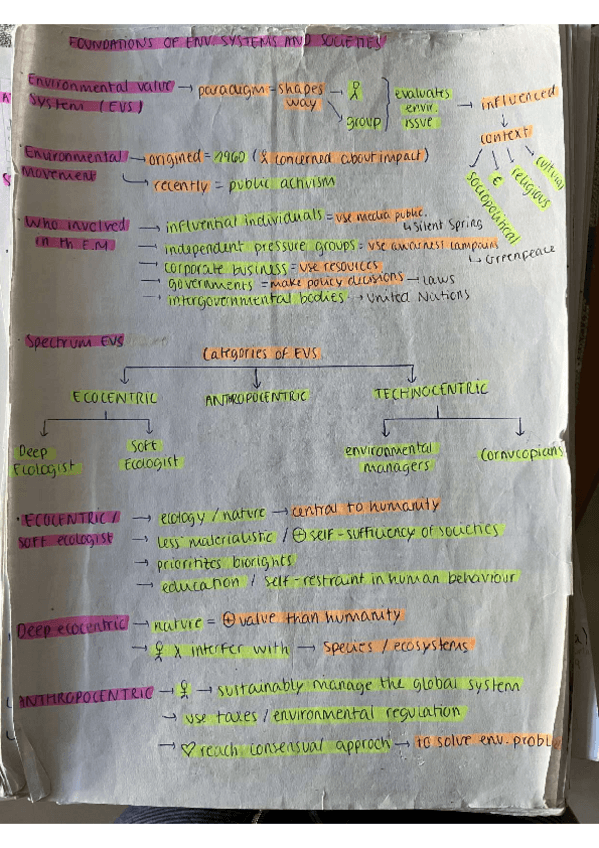 FOUNDATIONS OF ENV. SYSTEMS AND SOCIETIES
Environmental value → paradigm - shapes → evaluates → influenced
system (EVS) way group envir. context
issue
sociopolitical € religious cultural
· Environmental → origined = 1960 ( concerned about impact)
movement → recently = public activism
· Who involved → influential individuals = use media public.
in th E.M → Silent Spring
→ independent pressure groups = use awarnest campains
→ Greenpeace
→ corporate business = use resources
→ governments = make policy decisions → laws
→ intergovernmental bodies → United Nations
· Spectrum EVS
Categories of EVS
ECOCENTRIC ANTHROPOCENTRIC TECHNOCENTRIC
Deep Soft environmental Cornucopians
Ecologist Ecologist managers
· ECOCENTRIC / → ecology / nature → central to humanity
soft ecologist → less materialistic / ⊕ self-sufficiency of societies
→ priorities biorights
→ education / self-restraint in human behaviour
Deep ecocentric → nature = ⊕ value than humanity
→ interfer with → species / ecosystems
ANTHROPOCENTRIC → → sustainably manage the global system
→ use taxes / environmental regulation
→ ♡ reach consensual approch → to solve env. probl